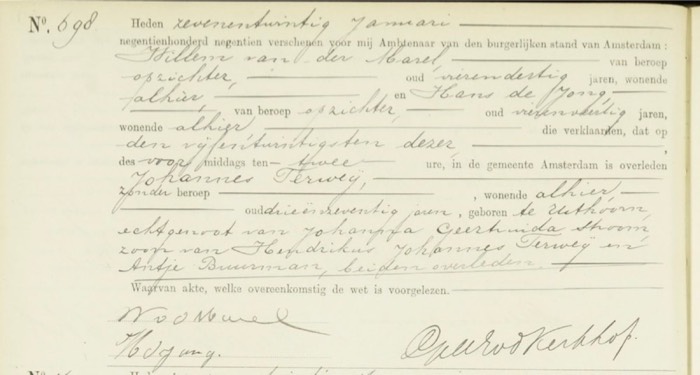 Nº. 698 Heden zevenentwintig Januari
negentienhonderd negentien verschenen voor mij Ambtenaar van den burgerlijken stand van Amsterdam :
Willem van der Marel, van beroep
opzichter, oud vierendertig jaren, wonende
alhier, en Hans de Jong,
, van beroep opzichter, oud vierenveertig jaren,
wonende alhier die verklaarden, dat op
den vijfentwintigsten dezer ,
des voor middags ten twee ure, in de gemeente Amsterdam is overleden
Johannes Terweij,
zonder beroep , wonende alhier
oud drieënzeventig jaren , geboren te Uithoorn,
echtgenoot van Johanna Geertruida Stroom,
zoon van Hendrikus Johannes Terweij en
Antje Buurman, beiden overleden.
Waarvan akte, welke overeenkomstig de wet is voorgelezen.
WvdMarel
HdJong.
Kerkhof.